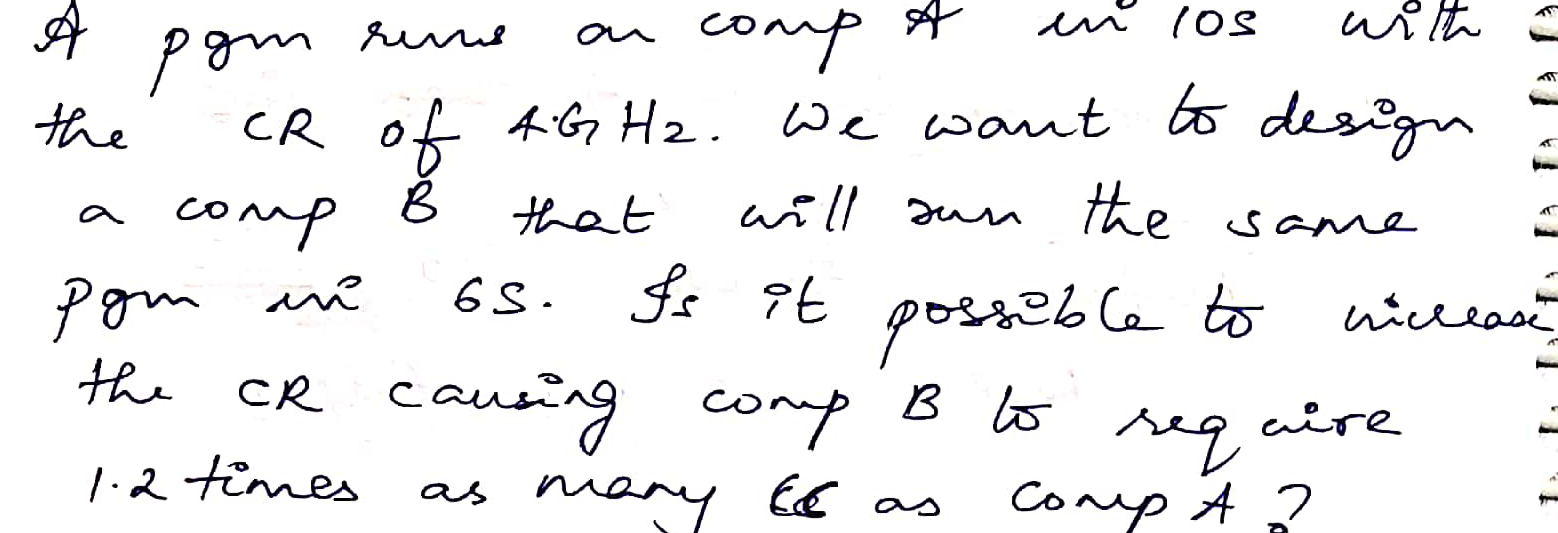 A pgm runs on comp A in 10s with
the CR of 4.G Hz. We want to design
a comp B that will run the same
pgm in 6s. Is it possible to increase
the CR causing comp B to require
1.2 times as many CC as comp A?